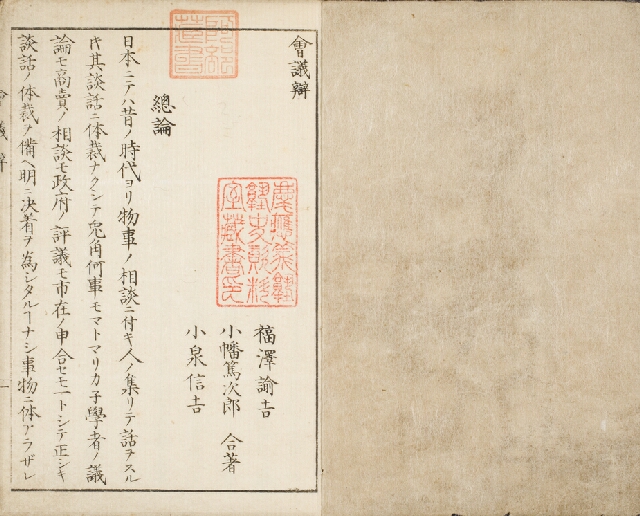 會議辯
福澤諭吉
小幡篤次郎 合著
小泉信吉
總論
日本ニテハ昔ノ時代ヨリ物事ノ相談ニ付キ人ノ集リテ話ヲスル
キ其談話ニ体裁ナクシテ兎角何事モマトマリカ子學者ノ議
論モ商賣ノ相談モ政府ノ評議モ市在ノ申合セモ一トシテ正シキ
談話ノ体裁ヲ備ヘ明ニ決着ヲ為シタルヿナシ事物ニ体アラザレ
會議辯
一